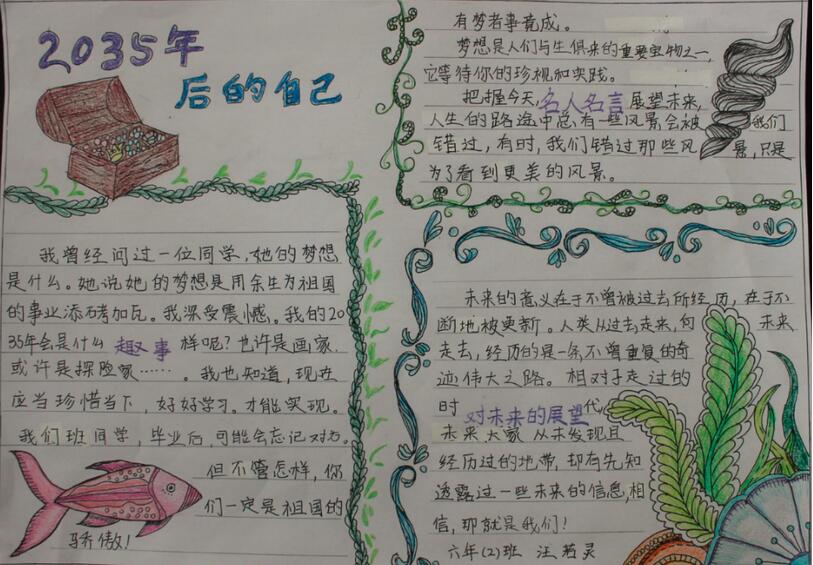 2035年
后的自己
我曾经问过一位同学，她的梦想
是什么。她说她的梦想是用余生为祖国
的事业添砖加瓦。我深受震憾。我的20
35年会是什么 趣事 样呢？也许是画家，
或许是探险家……。我也知道，现在
应当珍惜当下，好好学习。才能实现。
我们班同学，毕业后，可能会忘记对方。
但不管怎样，你
们一定是祖国的
骄傲！
有梦者事竟成。
梦想是人们与生俱来的重要宝物之一，
它等待你的珍视和实践。
把握今天，名人名言 展望未来，
人生的路途中总有一些风景会被 我们
错过，有时，我们错过那些风 景，只是
为了看到更美的风景。
未来的意义在于不曾被过去所经历，在于不
断地被更新。人类从过去走来，向 未来
走去，经历的是一条不曾重复的奇
迹伟大之路。相对于走过的
时 对未来的展望 代，
未来大家从未发现且
经历过的地带，却有先知
透露过一些未来的信息，相
信，那就是我们！
六年(2)班 汪若灵